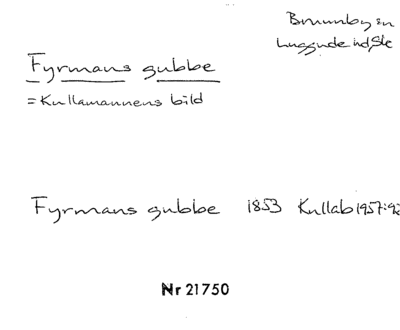 Brunnby sn
Luggude hd, Sk
Fyrmans gubbe
= Kullamannens bild
Fyrmans gubbe 1853 Kullab 1957:92
Nr 21750